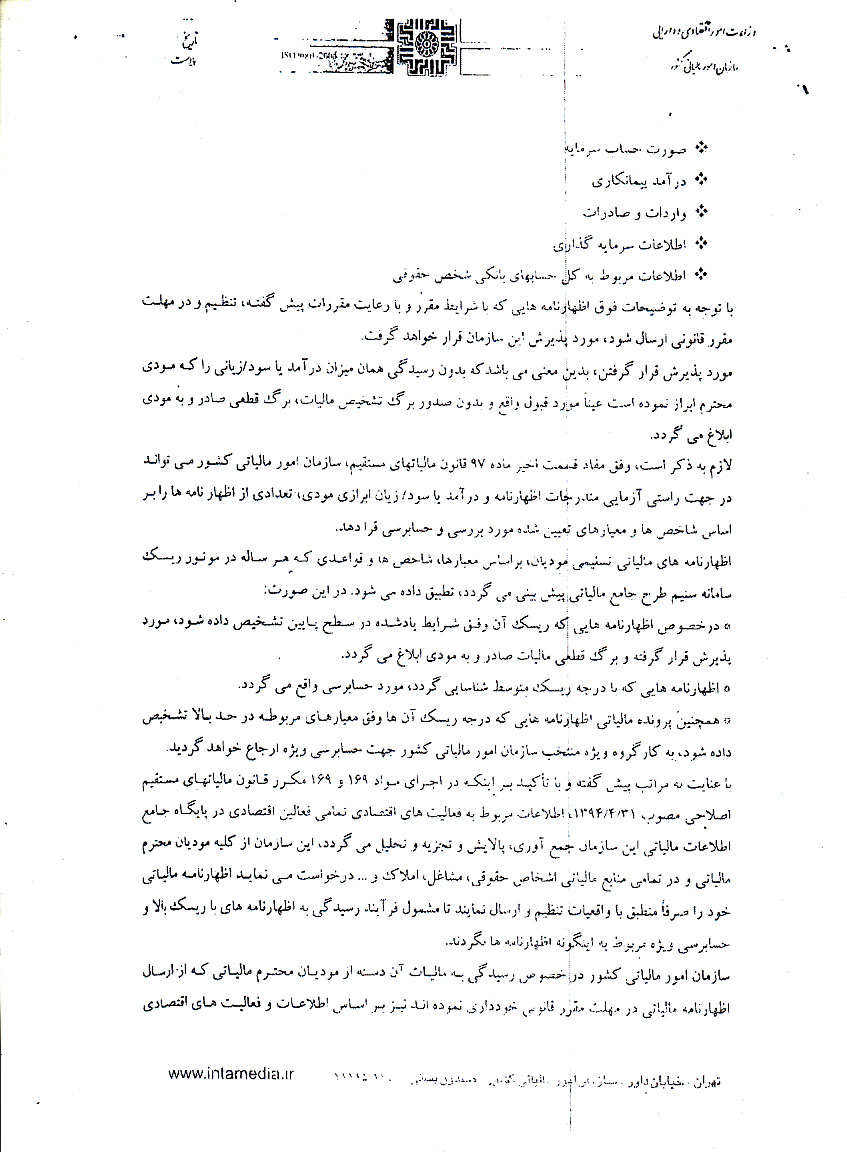 وزارت امور اقتصادی و دارایی
سازمان امور مالیاتی کشور
تاریخ
ISO 9001-2008
❖ صورت حساب سرمایه
❖ درآمد پیمانکاری
❖ واردات و صادرات
❖ اطلاعات سرمایه گذاری
❖ اطلاعات مربوط به کل حسابهای بانکی شخص حقوقی
با توجه به توضیحات فوق اظهارنامه هایی که با شرایط مقرر و با رعایت مقررات پیش گفته، تنظیم و در مهلت
مقرر قانونی ارسال شود، مورد پذیرش این سازمان قرار خواهد گرفت.
مورد پذیرش قرار گرفتن، بدین معنی می باشد که بدون رسیدگی همان میزان درآمد یا سود/زیانی را که مودی
محترم ابراز نموده است عیناً مورد قبول واقع و بدون صدور برگ تشخیص مالیات، برگ قطعی صادر و به مودی
ابلاغ می گردد.
لازم به ذکر است، وفق مفاد قسمت اخیر ماده ۹۷ قانون مالیاتهای مستقیم، سازمان امور مالیاتی کشور می تواند
در جهت راستی آزمایی مندرجات اظهارنامه و درآمد یا سود/ زیان ابرازی مودی، تعدادی از اظهار نامه ها را بر
اساس شاخص ها و معیارهای تعیین شده مورد بررسی و حسابرسی قرا دهد.
اظهارنامه های مالیاتی تسلیمی مودیان، براساس معیارها، شاخص ها و قواعدی که هر ساله در موتور ریسک
سامانه سنیم طرح جامع مالیاتی پیش بینی می گردد، تطبیق داده می شود. در این صورت:
¤ درخصوص اظهارنامه هایی که ریسک آن وفق شرایط یادشده در سطح پایین تشخیص داده شود، مورد
پذیرش قرار گرفته و برگ قطعی مالیات صادر و به مودی ابلاغ می گردد.
¤ اظهارنامه هایی که با درجه ریسک متوسط شناسایی گردد، مورد حسابرسی واقع می گردد.
¤ همچنین پرونده مالیاتی اظهارنامه هایی که درجه ریسک آن ها وفق معیارهای مربوطه در حد بالا تشخیص
داده شود، به کارگروه ویژه منتخب سازمان امور مالیاتی کشور جهت حسابرسی ویژه ارجاع خواهد گردید.
با عنایت به مراتب پیش گفته و با تأکید بر اینکه در اجرای مواد ۱۶۹ و ۱۶۹ مکرر قانون مالیاتهای مستقیم
اصلاحی مصوب ۱۳۹۴/۴/۳۱، اطلاعات مربوط به فعالیت های اقتصادی تمامی فعالین اقتصادی در پایگاه جامع
اطلاعات مالیاتی این سازمان جمع آوری، پالایش و تجزیه و تحلیل می گردد، این سازمان از کلیه مودیان محترم
مالیاتی و در تمامی منابع مالیاتی اشخاص حقوقی، مشاغل، املاک و ... درخواست می نماید اظهارنامه مالیاتی
خود را صرفاً منطبق با واقعیات تنظیم و ارسال نمایند تا مشمول فرآیند رسیدگی به اظهارنامه های با ریسک بالا و
حسابرسی ویژه مربوط به اینگونه اظهارنامه ها نگردند.
سازمان امور مالیاتی کشور در خصوص رسیدگی به مالیات آن دسته از مودیان محترم مالیاتی که از ارسال
اظهارنامه مالیاتی در مهلت مقرر قانونی خودداری نموده اند نیز بر اساس اطلاعات و فعالیت های اقتصادی
تهران - خیابان داور - سازمان امور مالیاتی کشور - صندوق پستی
www.intamedia.ir